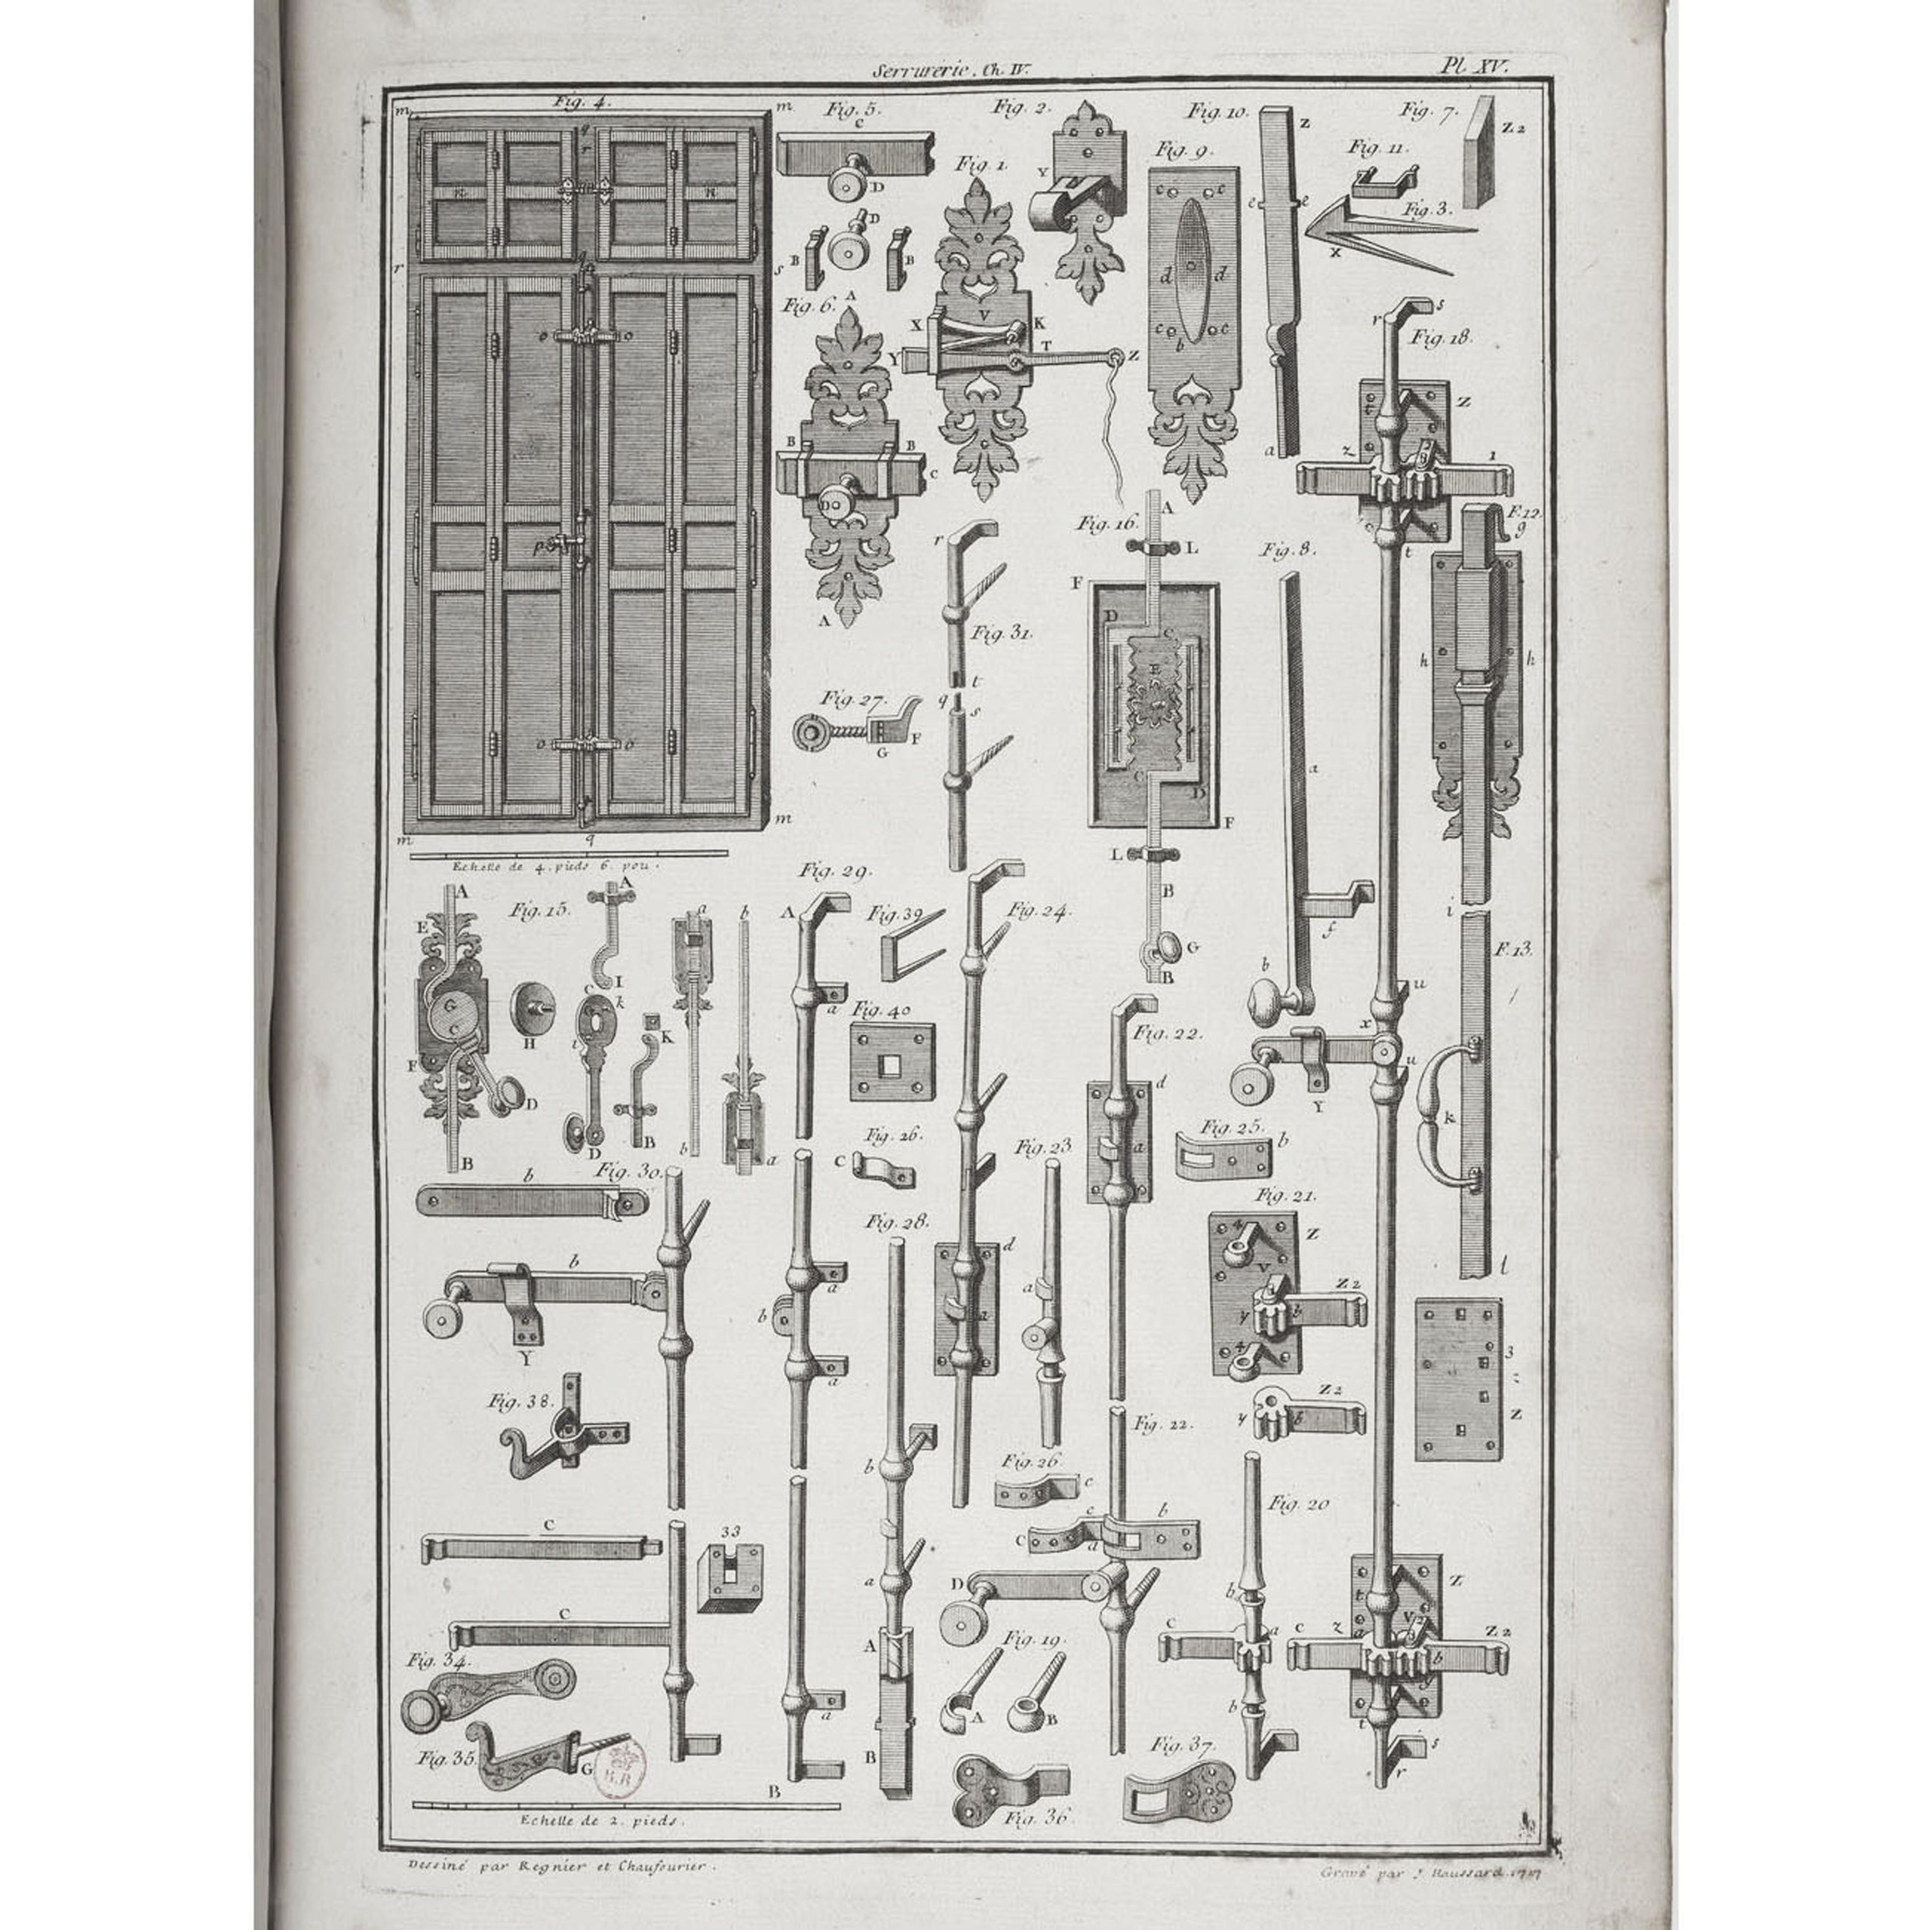 Serrurerie, Ch. IV.
Pl. XV.
Fig. 4.
m
m
Fig. 5.
c
Fig. 2.
Fig. 10.
z
Fig. 7.
Z 2
q
r
n
n
D
Fig. 1.
Y
Fig. 9.
c c
e e
Fig. 11.
Fig. 3.
X
D
B
B
r
s
q
d d
Fig. 6.
A
V
X
K
T
Y
Z
c c
b
a
r
s
Fig. 18.
o
o
t
Z
B
B
C
D
z
1
p
r
Fig. 16.
A
L
Fig. 8.
F. 12.
g
t
F
A
Fig. 31.
D
C
E
h
h
t
q
s
Fig. 27.
G
F
a
o
o
C
D
m
m
q
F
L
Echelle de 4. pieds 6. pou.
Fig. 29.
B
A
E
Fig. 15.
A
a
b
A
Fig. 39
Fig. 24.
f
i
F. 13.
G
G
C
I
C
k
B
b
u
H
i
K
a
Fig. 40
Fig. 22.
x
F
D
u
d
Y
k
B
D
B
b
a
Fig. 26.
C
Fig. 23
a
Fig. 25.
b
b
Fig. 30.
Fig. 21.
Fig. 28.
4
Z
l
b
d
V
Z 2
a
b
a
a
y
b
3
Y
a
4
Z
Fig. 38.
Z 2
y
b
Fig. 22.
b
Fig. 26.
c
Fig. 20
C
33
c
b
C
d
a
D
Z
b
t
C
A
c
a
c
z
a
V
Z 2
b
Fig. 34.
Fig. 19.
y
a
A
B
b
t
s
Fig. 35.
G
B.R
B
Fig. 37.
r
B
Fig. 36.
Echelle de 2. pieds.
Dessiné par Regnier et Chaufourier.
Gravé par J. Haussard. 1717